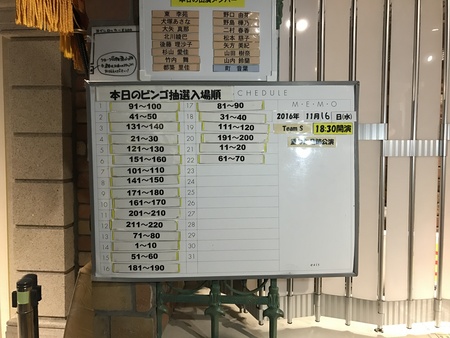 本日の出演メンバー
東 李苑
犬塚あさな
大矢 真那
北川綾巴
後藤 理沙子
杉山 愛佳
竹内 舞
都築 里佳
野口 由芽
野島 樺乃
二村 春香
松本 慈子
矢方 美紀
山田 樹奈
山内 鈴蘭
町 音葉
本日のビンゴ抽選入場順
SCHEDULE
1 91～100
2 41～50
3 131～140
4 21～30
5 121～130
6 151～160
7 101～110
8 141～150
9 171～180
10 161～170
11 201～210
12 211～220
13 71～80
14 1～10
15 51～60
16 181～190
17 81～90
18 31～40
19 111～120
20 191～200
21 11～20
22 61～70
23
24
25
26
27
28
29
30
31
M・E・M・O
2016年 11月16日(水)
Team S 18:30開演
公演